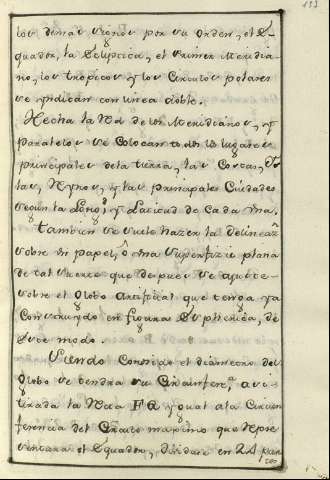 los demas signos por su orden, el E-
quador, la Ecliptica, el primer Meridia-
no, los tropicos y los Circulos polares
se yndican con linea doble.
Hecha la Red de los Meridianos, y
paralelos se colocan todos lo lugares
principales dela tierra, las Costas, Ys-
las, Reynos, y las principales Ciudades
segun la Longd y Latitud de Cada una.
Tambien se suele hazer la delineaon
sobre un papel, o una superfizie plana
de tal suerte que despues se ajuste
sobre el Globo artificial que tenga ya
Construydo en figura Espherica, de
este modo.
Siendo Conocido el diametro del
Globo se tendra su Circunfera
tirada la Recta FG ygual ala Circun
ferencia del Circulo maximo que repre
sentara el Equador, dividase en 24 par
tes